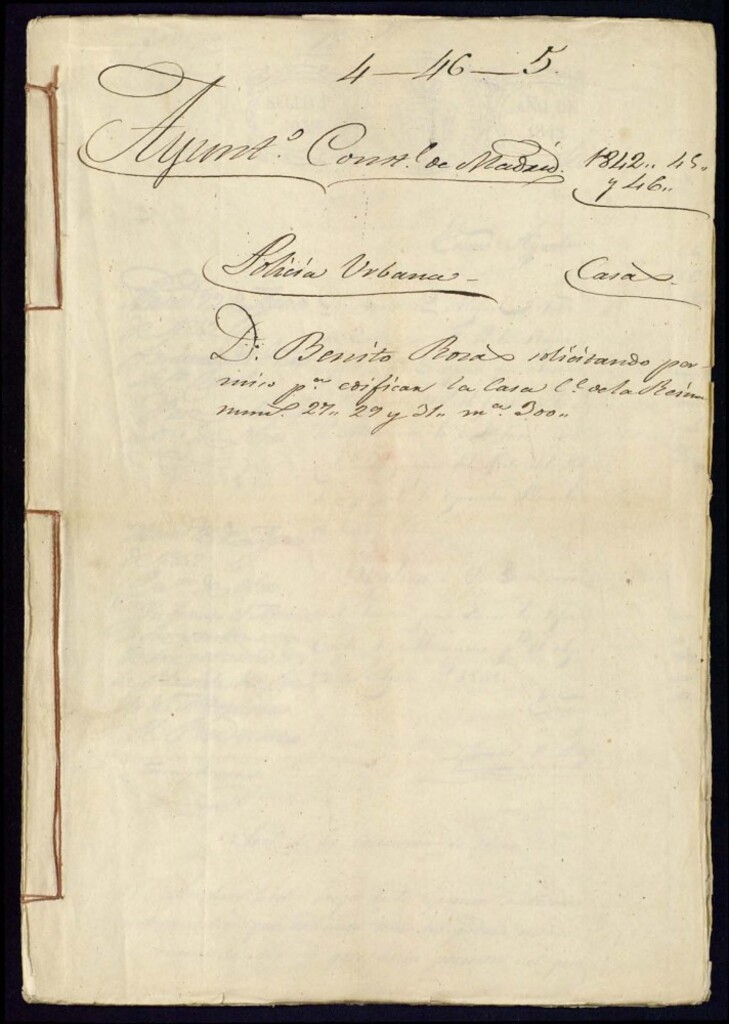 4-46-5.
Ayunt.º Const.l de Madrid. 1842.. 45..
y 46..
Policía Urbana - Casas -
D.n Benito Rosas solicitando per-
miso p.a edificar la Casa C.e de la Reina
num.s 27.. 29 y 31.. m.na 300..